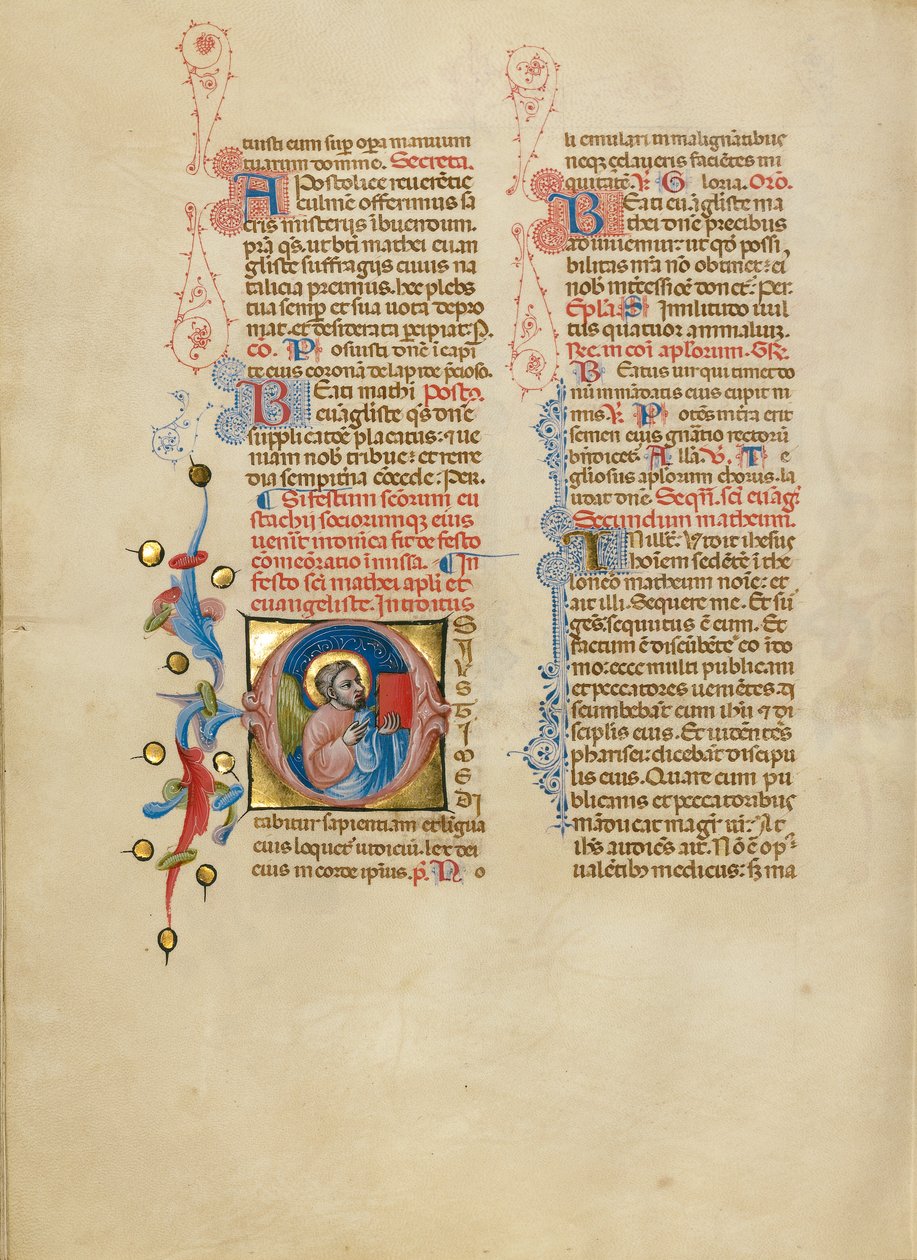 tuisti eum sup opa manuum
tuarum domine. Secreta.
APostolice reuerentie
culmē offerimus sa
cris misteriis ībuendum.
pra qs. ut bti mathei euan
gliste suffragijs cuius na
talicia preimus. hec plebs
tua semp et sua uota depro
mat. et desiderata percipiat. P.
cō. Posuisti dne ī capi
te eius coronā de lapide pcioso.
BEati mathei Postcō.
euāgliste qs dne
supplicatōe placatus: et ue
niam nob tribue: et reme
dia sempitna cōcede. Per.
Si festum scorum eu
stachij sociorumqꝫ eius
uenit in dnica fit de festo
cōmeoratio in missa. In
festo sci mathei apli et
euangeliste. Introitus
OS IVSTI MEDI
tabitur sapientiam et lingua
eius loquet iudiciū. lex dei
eius in corde ipsius. p̄. No
li emulari in malignatibus
neqꝫ zelaueris faciētes ini
quitatē. V. Gloria. Orō.
BEati euāgliste ma
thei dne precibus
adiuuemur: ut qd possi
bilitas nra nō obtinet: ei
nob intercessiōe donet. Per.
Epla. Similitudo uul
tus quatuor animaliuꝫ.
Rec. in cōi aplorum. Gr.
Beatus uir qui timet do
num in mādatis eius cupit ni
mis. V. Potēs in terra erit
semen eius gnatio rectorū
bndicet. Alla. V. Te
gliosus aplorum chorus. la
udat dne. Seqn. sci euāgł
Secundum matheum.
IN illo t. Vidit ihesus
hoiem sedentē ī the
loneo matheum noie: et
ait illi. Sequere me. Et su
gēs: sequutus ē eum. Et
factum ē discūbēte eo ī do
mo: ecce multi publicani
et peccatores uenientes. di
scumbebāt cum ihu et di
scipulis eius. Et uidentes
pharisei: dicebāt discipu
lis eius. Quare cum pu
blicanis et peccatoribus
māducat magr ur: At
ihs audiēs ait. Nō ē op
ualētibꝫ medicus: sꝫ ma